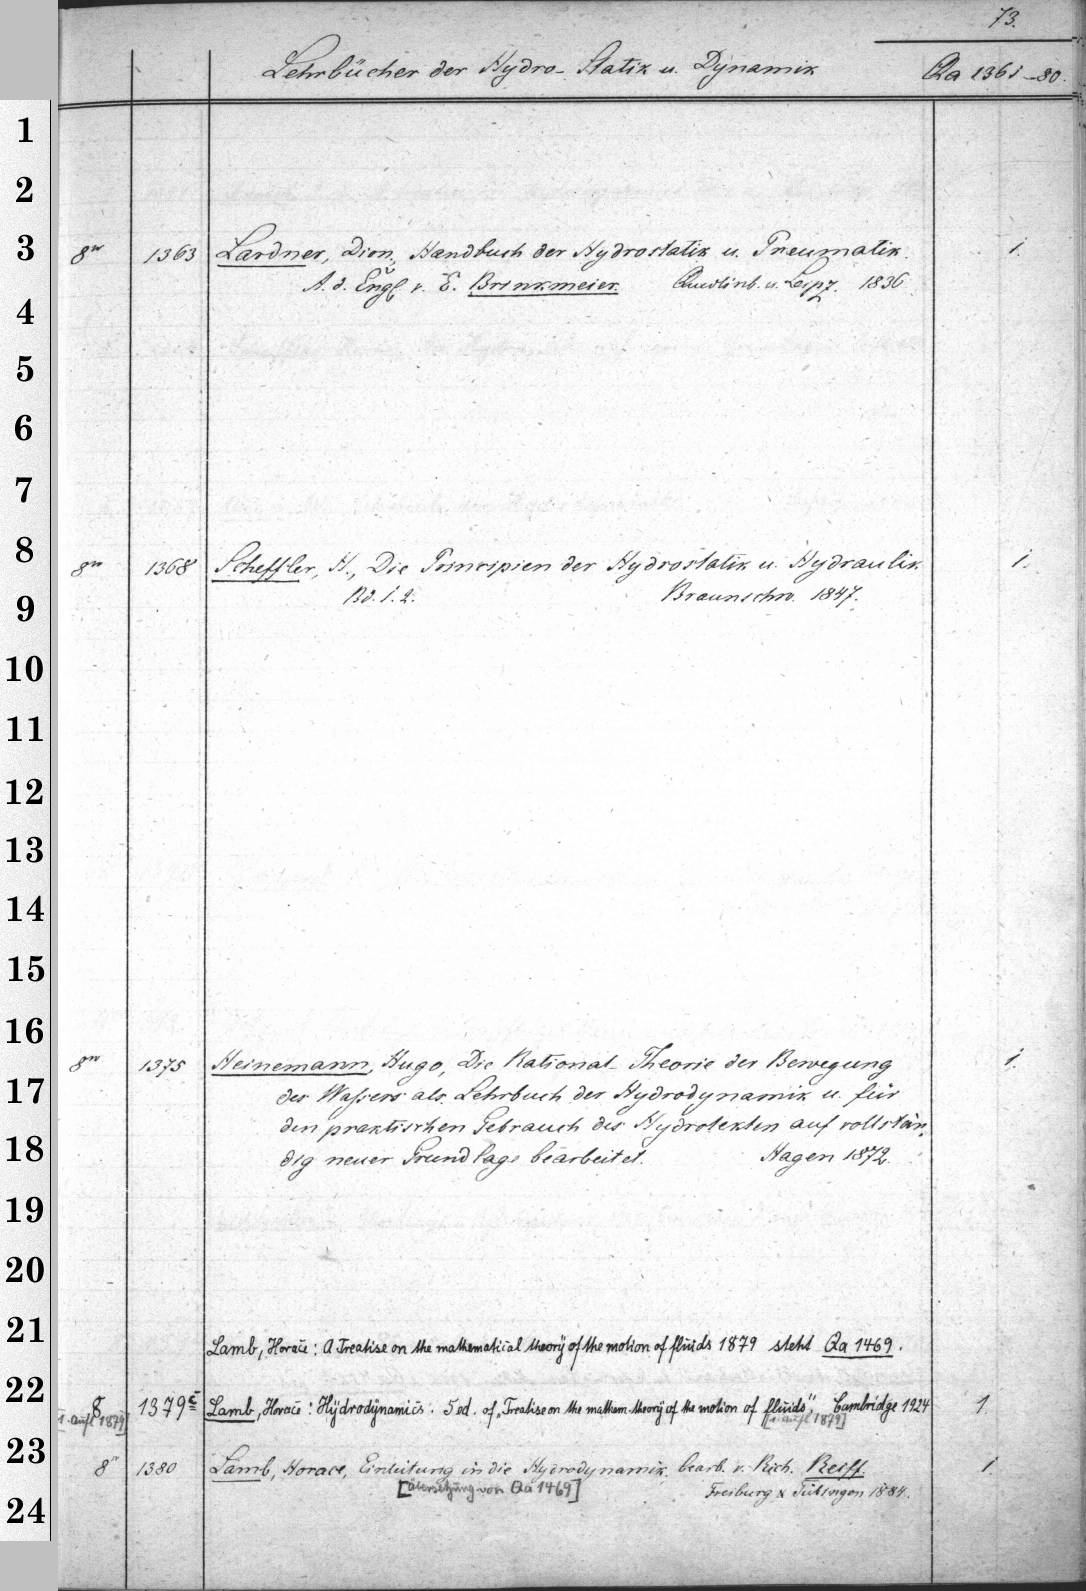 73.
Lehrbücher der Hydro- Statik u. Dynamik Qa 1361-80.
1
2
3
8vo 1363 Lardner, Dion., Handbuch der Hydrostatik u. Pneumatik. 1.
A. d. Engl. v. E. Brinkmeier. Quedlinb. u. Leipz. 1836.
4
5
6
7
8
8vo 1368 Scheffler, H., Die Principien der Hydrostatik u. Hydraulik 1.
Bd. 1. 2. Braunschw. 1847.
9
10
11
12
13
14
15
16
8vo 1375 Heinemann, Hugo, Die Rational-Theorie der Bewegung 1.
17
des Wassers als Lehrbuch der Hydrodynamik u. für
den praktischen Gebrauch des Hydrotekten auf vollstän-
18
dig neuer Grundlage bearbeitet. Hagen 1872.
19
20
21
Lamb, Horace: A Treatise on the mathematical theory of the motion of fluids 1879 steht Qa 1469.
22
8 1379c Lamb, Horace: Hydrodynamics. 5 ed. of „Treatise on the mathem. theory of the motion of fluids", Cambridge 1924 1
[1. Aufl 1879] [1. Aufl 1879]
23
8° 1380 Lamb, Horace, Einleitung in die Hydrodynamik, bearb. v. Rich. Reiff. 1.
[Übersetzung von Qa 1469] Freiburg & Tübingen 1884.
24